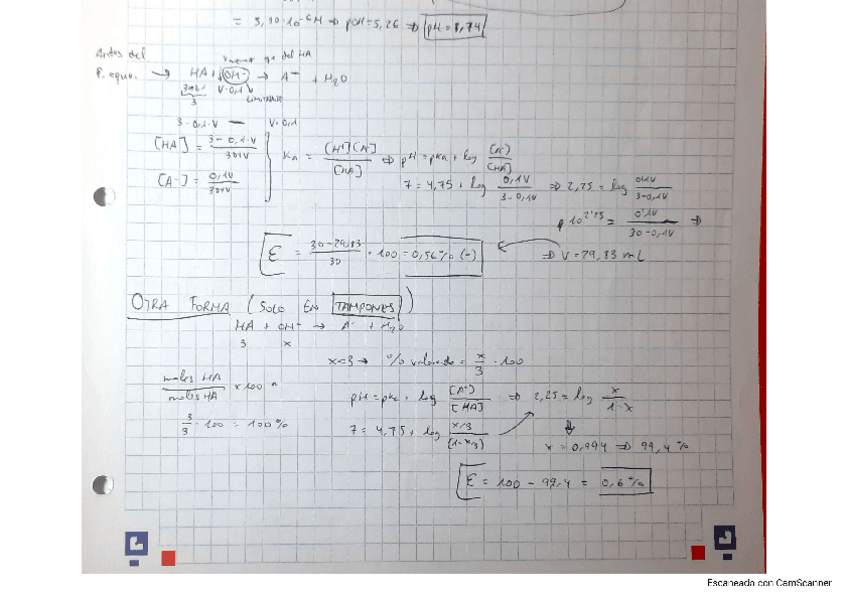 = 3,30·10⁻⁶ M ⇒ pOH = 5,26 ⇒ pH = 8,74
Antes del
P. equiv. → HA + OH⁻ → A⁻ + H₂O
que del HA
V·0,1
LIMITANTE
3
3-0,1·V — V·0,1
[HA] = 3-0,1·V / 30+V
[A⁻] = 0,1V / 30+V
Ka = [H⁺][A⁻] / [HA] ⇒ pH = pKa + log [A⁻] / [HA]
7 = 4,75 + log 0,1V / 3-0,1V ⇒ 2,25 = log 0,1V / 3-0,1V
10^2,25 = 0,1V / 30-0,1V ⇒
⇒ V = 29,83 mL
Ɛ = 30-29,83 / 30 · 100 = 0,56% (-)
OTRA FORMA (SOLO EN TAMPONES)
HA + OH⁻ → A⁻ + H₂O
3 x
x<3 → % valorado = x/3 · 100
moles HA / moles HA x 100
3/3 · 100 = 100%
pH = pKa + log [A⁻] / [HA] ⇒ 2,25 = log x / 1-x
7 = 4,75 + log x/3 / (1-x/3)
x = 0,994 ⇒ 99,4%
Ɛ = 100 - 99,4 = 0,6%
Escaneado con CamScanner